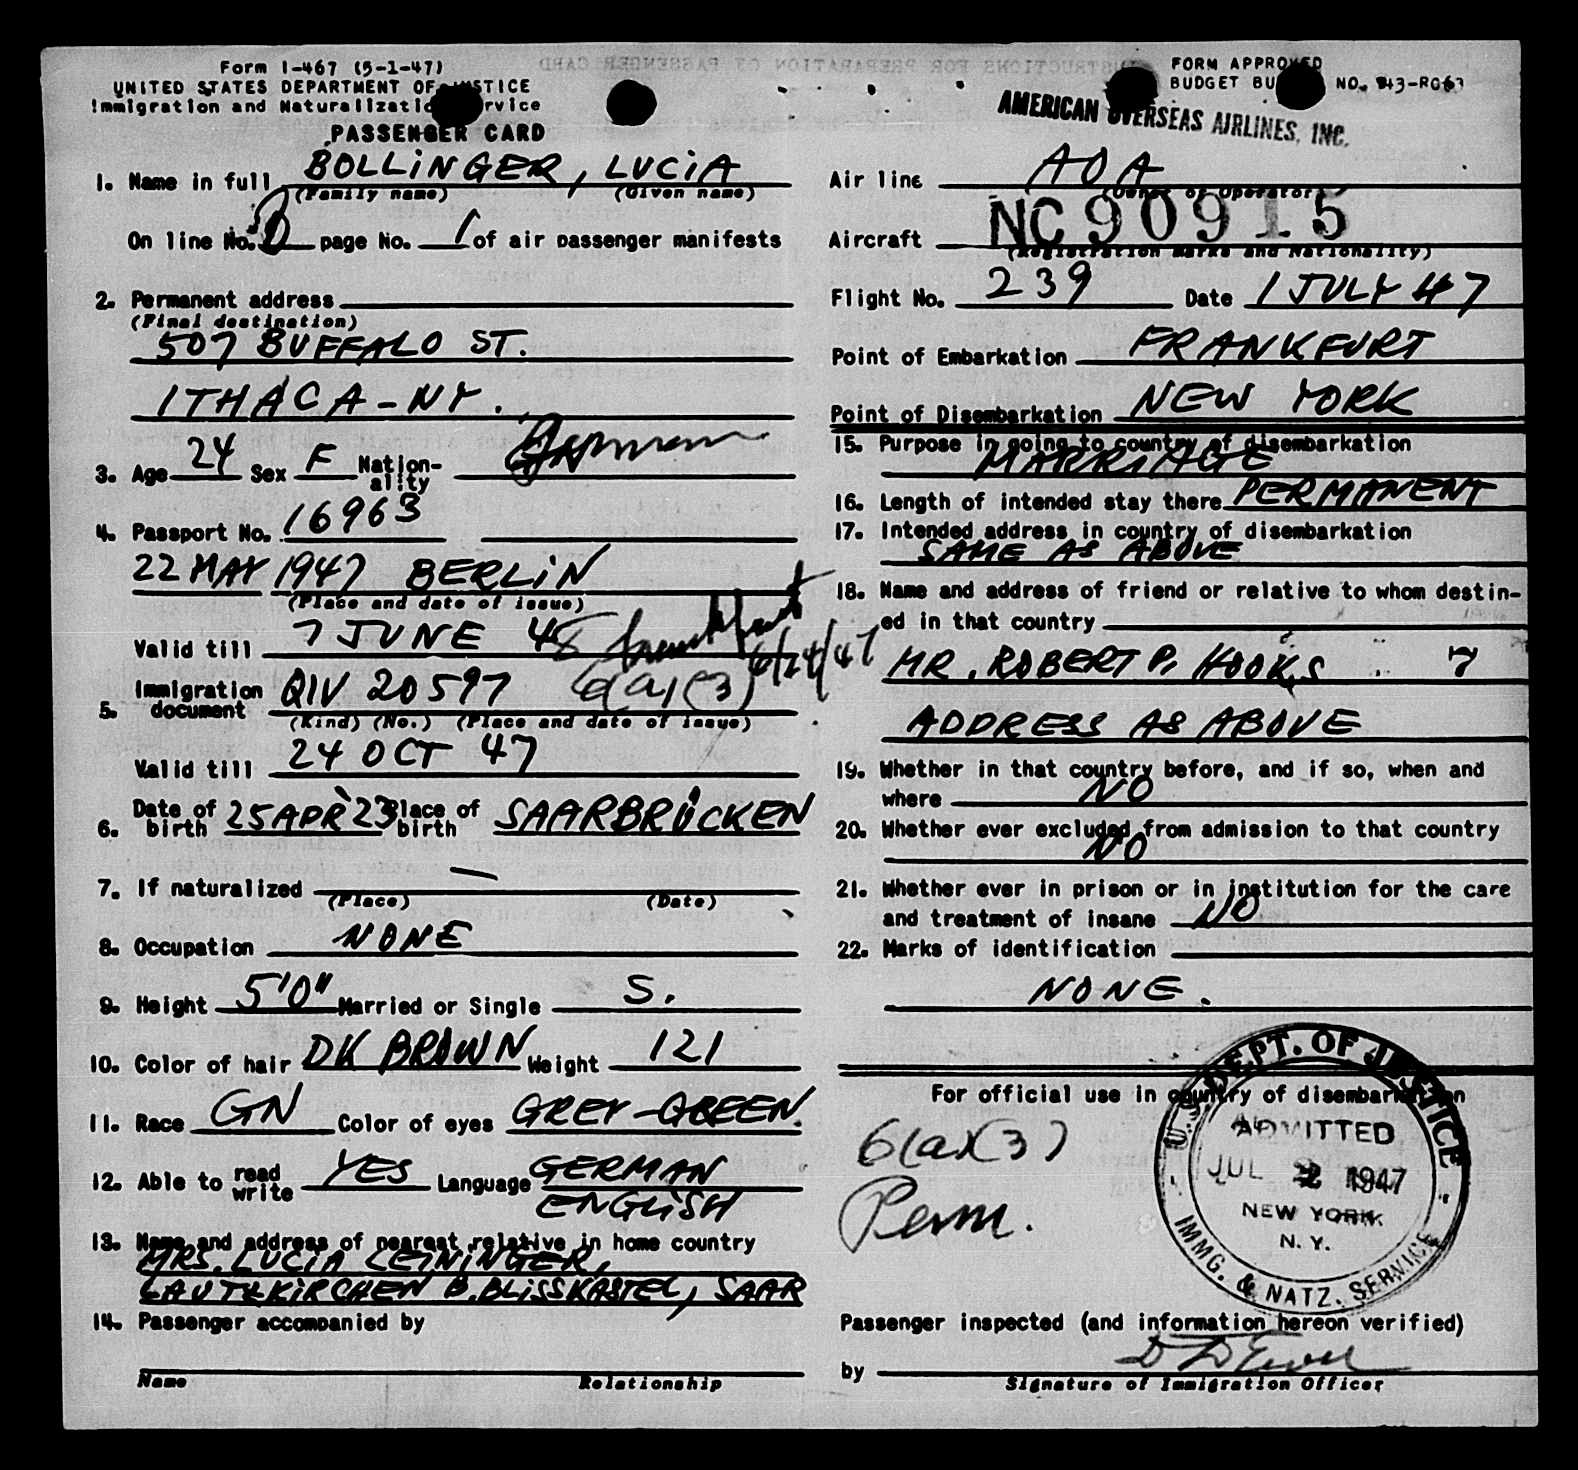 Form I-467 (5-1-47)
UNITED STATES DEPARTMENT OF JUSTICE
Immigration and Naturalization Service
PASSENGER CARD
FORM APPROVED
BUDGET BU NO. 43-R063
AMERICAN OVERSEAS AIRLINES, INC.
1. Name in full BOLLINGER, LUCIA
(Family name) (Given name)
On line No. page No. 1 of air passenger manifests
2. Permanent address
(Final destination)
507 BUFFALO ST.
ITHACA - NY.
3. Age 24 Sex F Nation-ality German
4. Passport No. 16963
22 MAY 1947 BERLIN
(Place and date of issue)
Valid till 7 JUNE 48
Frankfurt
6/24/47
5. Immigration document QIV 20597 6(a)(3)
(Kind) (No.) (Place and date of issue)
Valid till 24 OCT 47
6. Date of birth 25 APR 23 Place of birth SAARBRÜCKEN
7. If naturalized —
(Place) (Date)
8. Occupation NONE
9. Height 5'0" Married or Single S.
10. Color of hair DK BROWN Weight 121
11. Race GN Color of eyes GREY-GREEN.
12. Able to read write YES Language GERMAN
ENGLISH
13. Name and address of nearest relative in home country
MRS. LUCIA LEININGER,
LAUTZKIRCHEN B. BLISSKASTEL, SAAR
14. Passenger accompanied by
Name Relationship
Air line AOA
(Owner or Operator)
Aircraft NC90915
(Registration Marks and Nationality)
Flight No. 239 Date 1 JULY 47
Point of Embarkation FRANKFURT
Point of Disembarkation NEW YORK
15. Purpose in going to country of disembarkation
MARRIAGE
16. Length of intended stay there PERMANENT
17. Intended address in country of disembarkation
SAME AS ABOVE
18. Name and address of friend or relative to whom destin-
ed in that country
MR. ROBERT P. HOOKS 7
ADDRESS AS ABOVE
19. Whether in that country before, and if so, when and
where NO
20. Whether ever excluded from admission to that country
NO
21. Whether ever in prison or in institution for the care
and treatment of insane NO
22. Marks of identification
NONE.
For official use in country of disembarkation
6(a)(3)
Perm.
U.S. DEPT. OF JUSTICE
ADMITTED
JUL 2 1947
NEW YORK
N. Y.
IMMG. & NATZ. SERVICE
Passenger inspected (and information hereon verified)
by
Signature of Immigration Officer